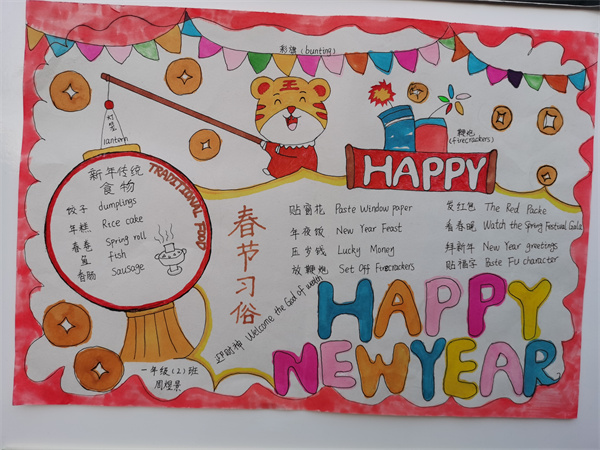 彩旗 (bunting)
灯笼
lantern
鞭炮
(firecrackers)
HAPPY
TRADITIONAL FOOD
新年传统
食物
饺子 dumplings
年糕 Rice cake
春卷 Spring roll
鱼 fish
香肠 Sausage
春节习俗
贴窗花 Paste Window paper
年夜饭 New Year Feast
压岁钱 Lucky Money
放鞭炮 Set Off Firecrackers
迎财神 Welcome the God of wealth
发红包 The Red Packe
看春晚 Watch the Spring Festival Gala
拜新年 New Year greetings
贴福字 Paste FU character
HAPPY
NEWYEAR
一年级(2)班